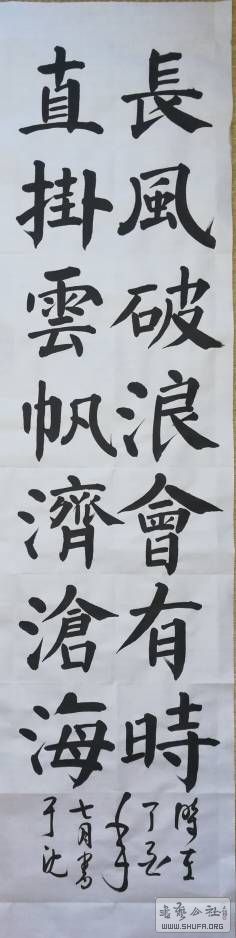 長風破浪會有時
直掛雲帆濟滄海
時在
丁酉
年
七月書
于沈
書藝公社
WWW.SHUFA.ORG